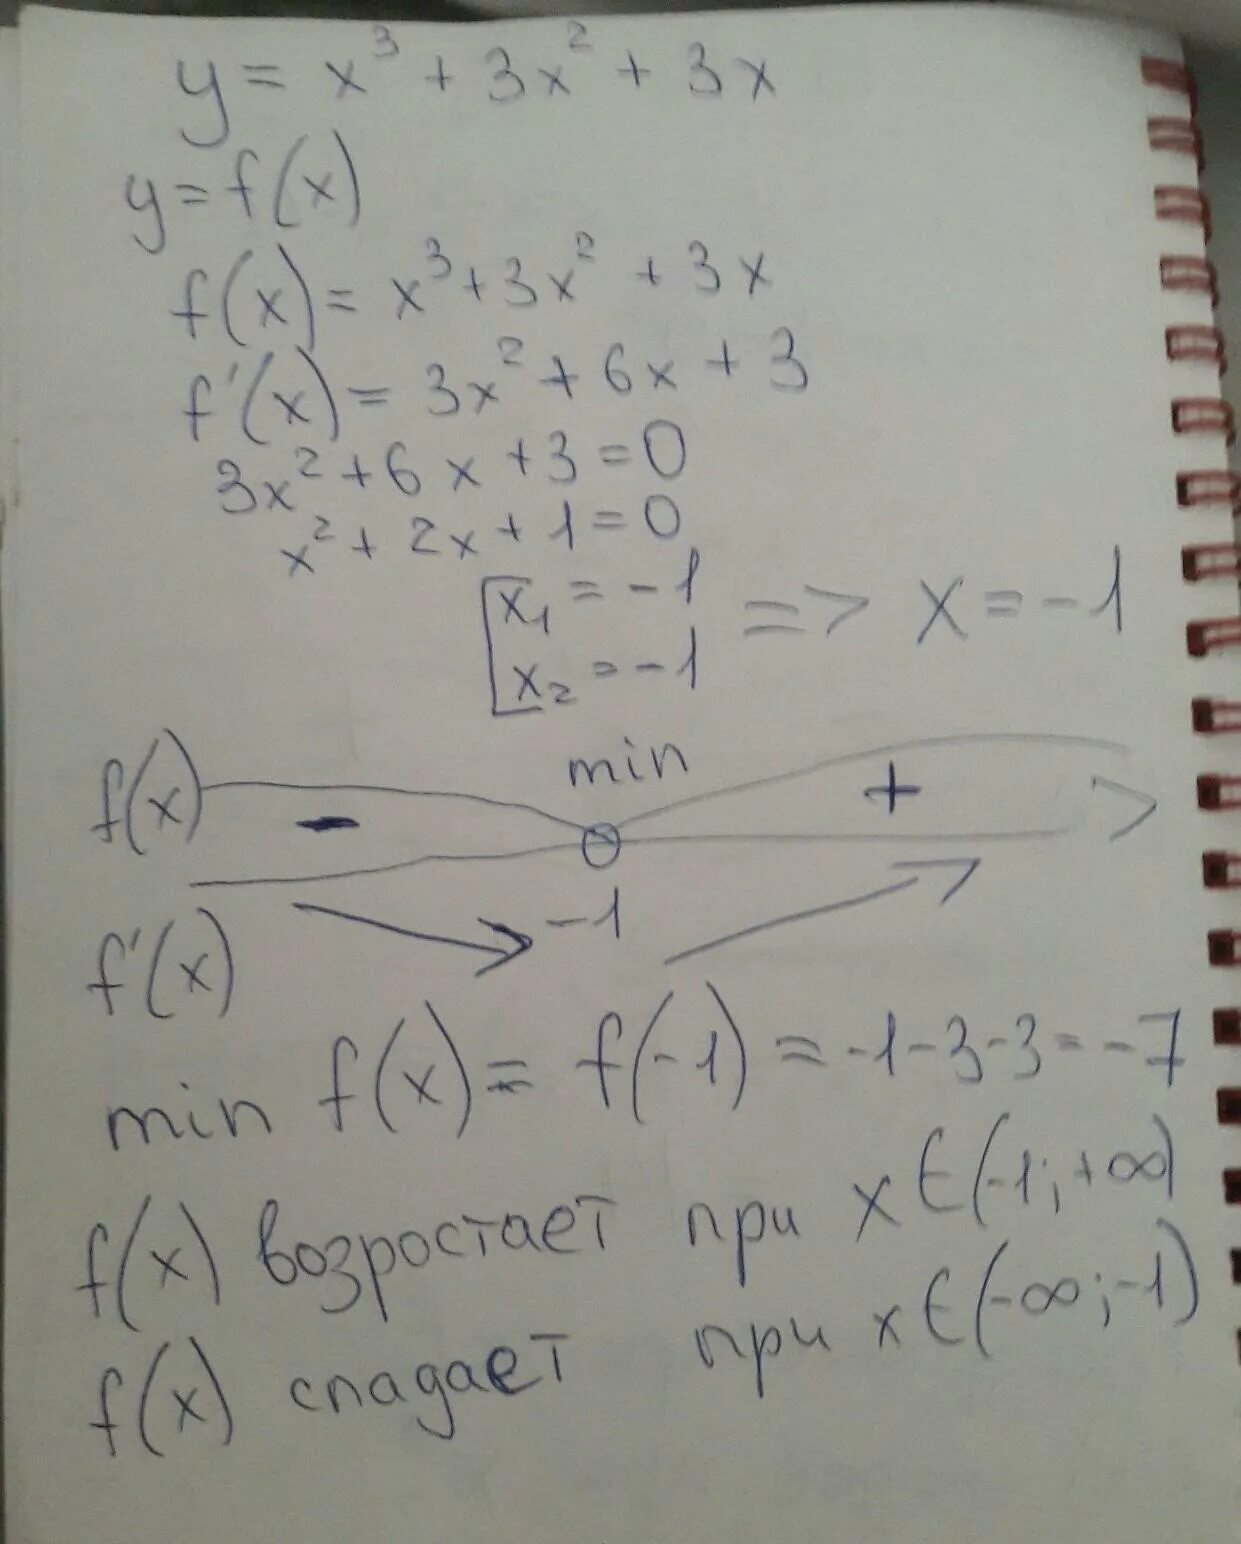 y = x³ + 3x² + 3x
y = f(x)
f(x) = x³ + 3x² + 3x
f'(x) = 3x² + 6x + 3
3x² + 6x + 3 = 0
x² + 2x + 1 = 0
[x₁ = -1
x₂ = -1 => x = -1
min
f(x) - +
-1
f'(x)
min f(x) = f(-1) = -1-3-3 = -7
f(x) возростает при x∈(-1; +∞)
f(x) спадает при x∈(-∞; -1)